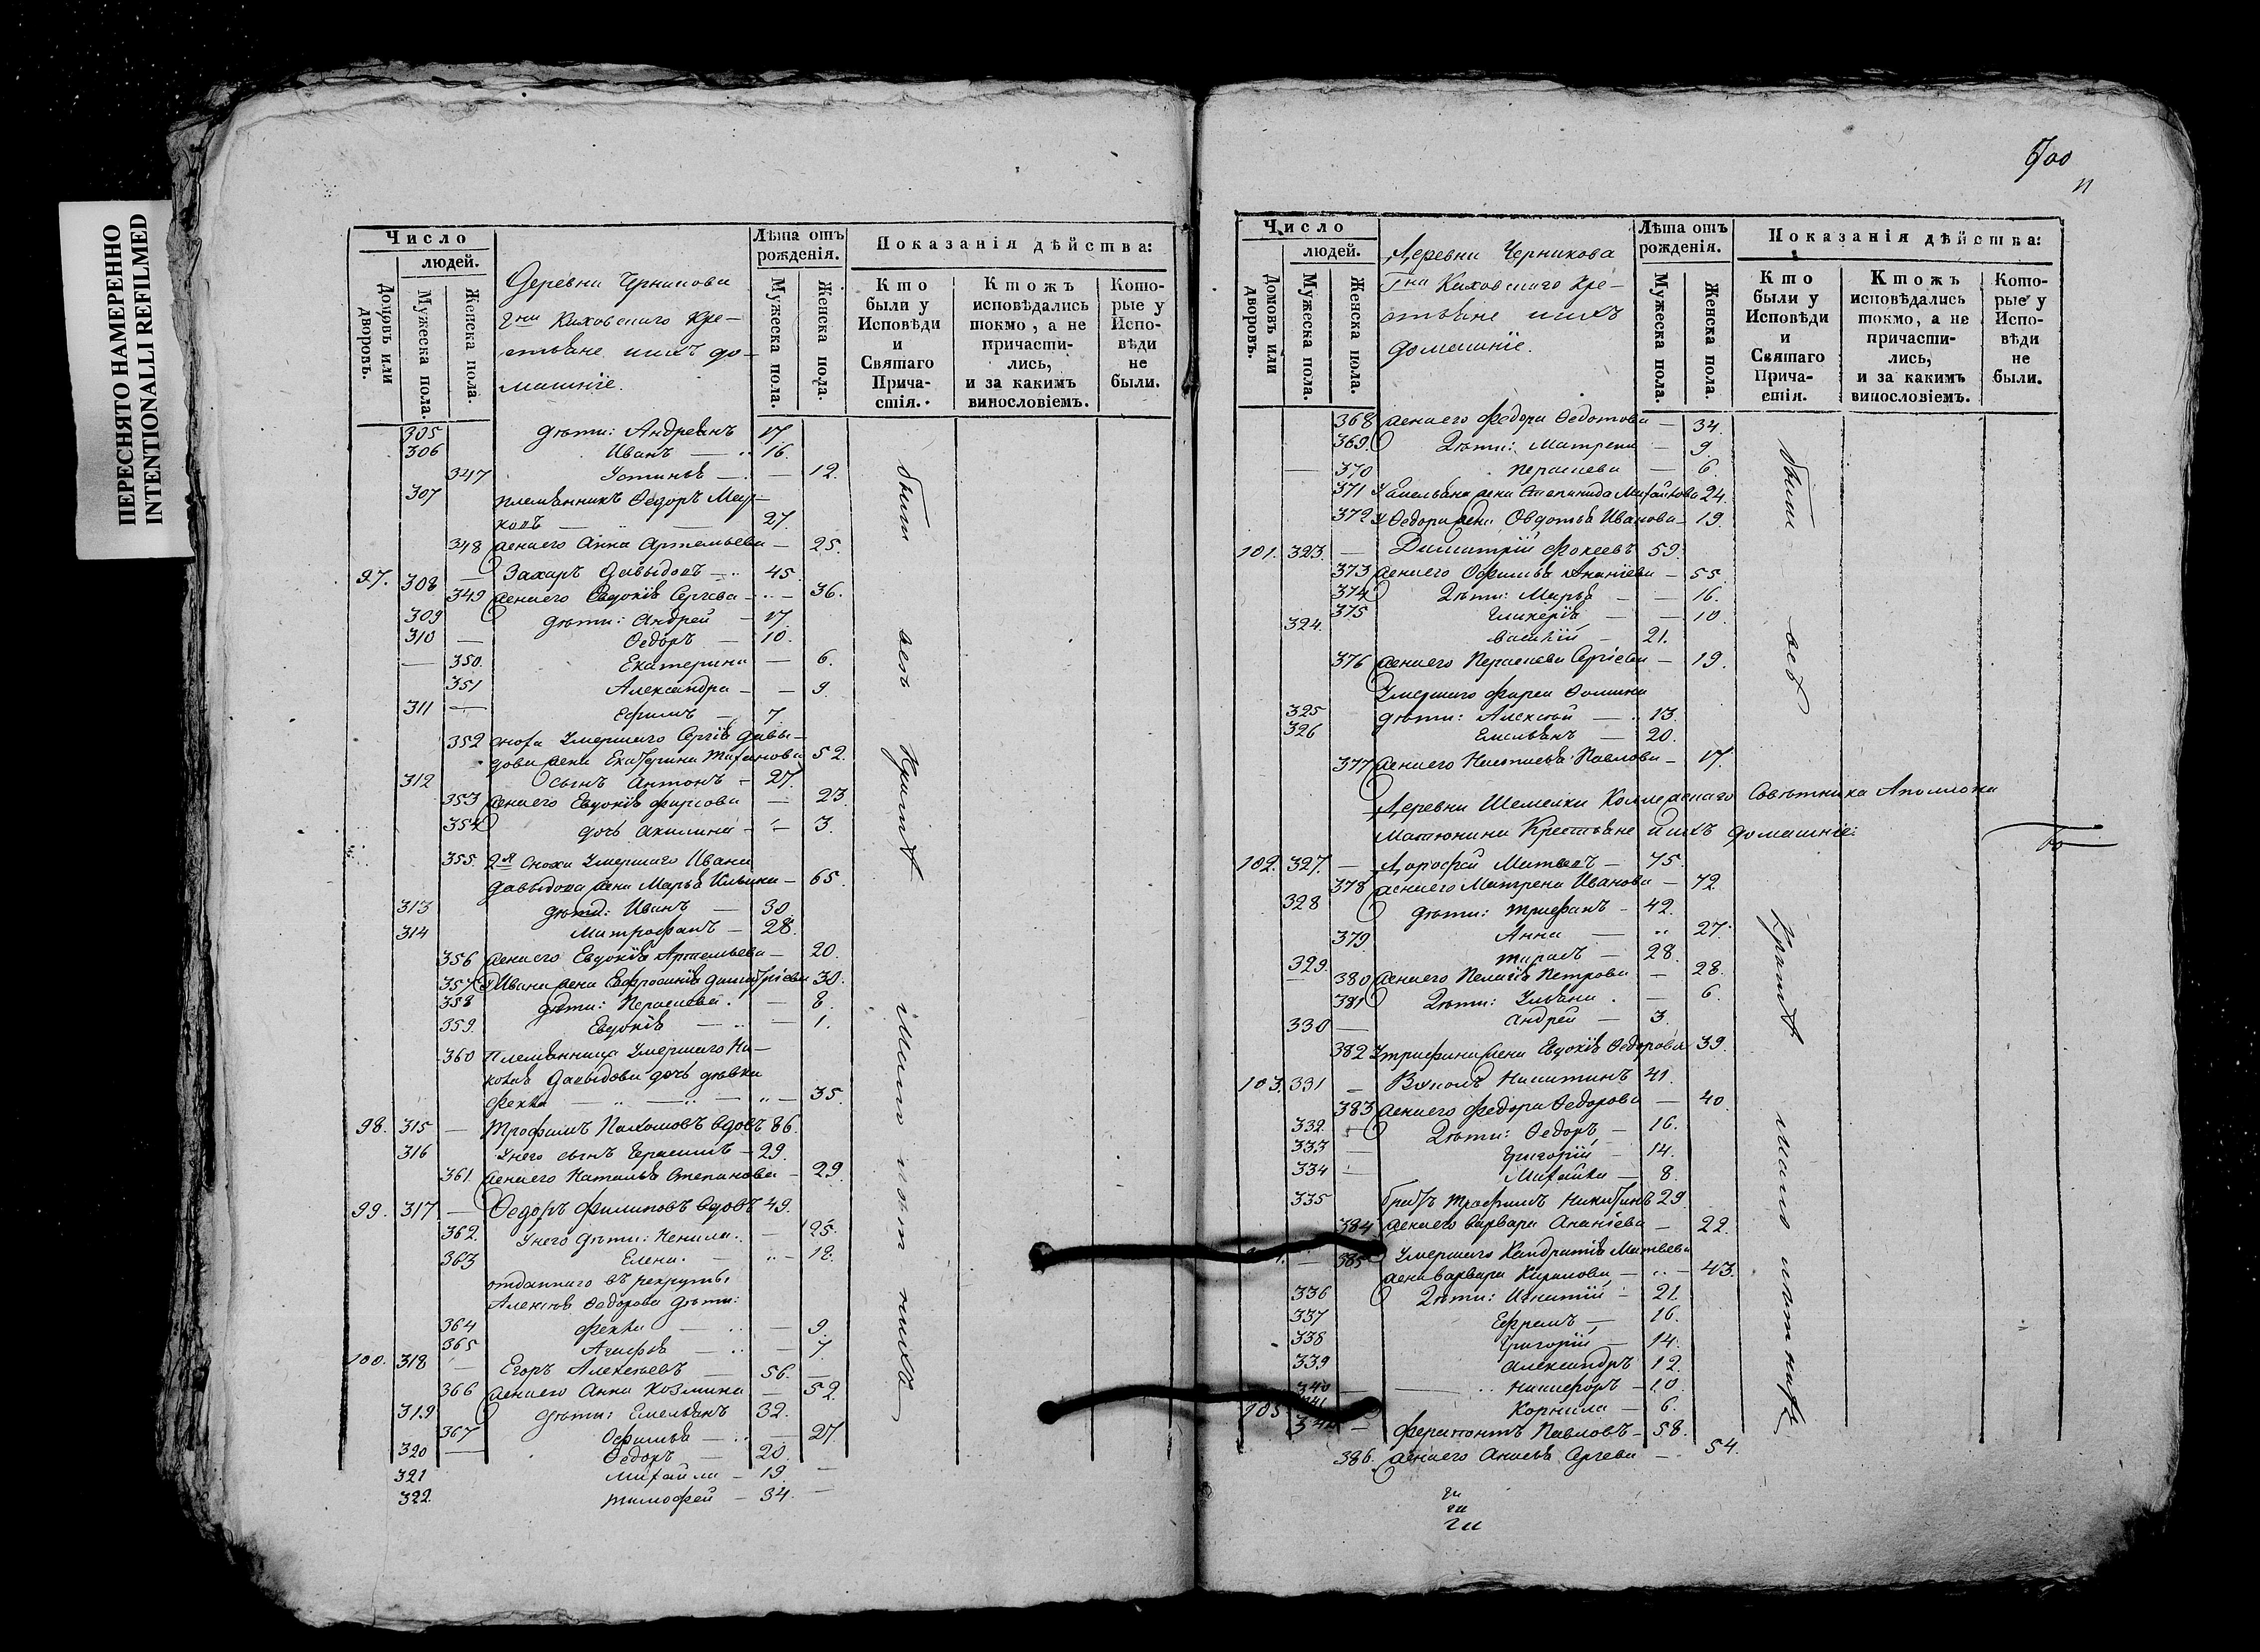 ПЕРЕСНЯТО НАМЕРЕННО
INTENTIONALLI REFILMED
Число
людей.
Домовъ или дворовъ.
Мужеска пола.
Женска пола.
Деревни Черникова
Гна Каховскаго Кре-
стьяне и ихъ до-
машніе.
Лѣта отъ рожденія.
Мужеска пола.
Женска пола.
Показанія дѣйства:
Кто были у Исповѣди и Святаго Прича-стія.
Ктожъ исповѣдались токмо, а не причасти-лись, и за какимъ винословіемъ.
Кото-рые у Испо-вѣди не были.
305 дѣти: Андреянъ 17
306 Иванъ 16.
347 Устинья 12.
307 племянникъ Ѳедоръ Мар-
ковъ 27.
348 жена его Анна Артемьева 25.
97. 308 Захаръ Давыдовъ 45.
349 жена его Евдокія Сергева 36.
309 дѣти: Андрей 17.
310 Ѳедоръ 10.
350. Екатерина 6.
351 Александра 9.
311 Ефимъ 7.
352 сноха умершаго Сергія Давы-
дова жена Екатерина 52.
312 сынъ Антонъ 27.
353 жена его Евдокія Фирсова 23.
354 дочь Акилина 3.
355. 2я сноха умершаго Ивана
Давыдова жена Марья Ильина 65.
313 дѣти: Иванъ 30
314 Митрофанъ 28.
356 жена его Евдокія Артемьева 20.
357 у Ивана жена Евфросинія Димитріева 30.
358 дѣти: Парасковья 8.
359. Евдокія 1.
360 Племянница умершаго
Давыдова дочь дѣвка
Фекла 35.
98. 315 Трофимъ Пахомовъ вдовъ 86.
316 у него сынъ Герасимъ 29.
361 жена его Наталья Степанова 29.
99. 317 Ѳедоръ Филиповъ вдовъ 49.
362. у него дѣти: Ненила 25.
363 Елена 18.
отданнаго въ рекруты
Алексѣя Ѳедорова дѣти:
364 Фекла 9.
365 Агафья 7.
100. 318 Егоръ Алексѣевъ 56.
366 жена его Анна Козмина 52.
319 дѣти: Емельянъ 32.
367 Офимья 27
320 Ѳедоръ 20.
321 Михайла 19.
322 Тимофей 34.
были всѣ
700
Число
людей.
Домовъ или дворовъ.
Мужеска пола.
Женска пола.
Деревни Черникова
Гна Каховскаго Кре-
стьяне и ихъ
домашніе.
Лѣта отъ рожденія.
Мужеска пола.
Женска пола.
Показанія дѣйства:
Кто были у Исповѣди и Святаго Прича-стія.
Ктожъ исповѣдались токмо, а не причасти-лись, и за какимъ винословіемъ.
Кото-рые у Испо-вѣди не были.
368 жена его Федора Ѳедотова 34.
369. Дѣти: Матрена 9.
370 Парасковья 6.
371 у Емельяна жена Степанида Михайлова 24.
372 у Ѳедора жена Овдотья Иванова 19.
101. 323. Димитрій Фокеевъ 59.
373 жена его Офимья Ананіева 55.
374 Дѣти: Марья 16.
375 Гликерія 10.
324. Василій 21.
376 жена его Парасковья Сергіева 19.
умершаго Ѳомина
325 дѣти: Алексѣй 13.
326 Емельянъ 20.
377 жена его Настасья Павлова 17.
Деревни Шемейки Коллежскаго Совѣтника Аполлона
Матюнина Крестьяне и ихъ домашніе:
102. 327. Дорофей Матвеевъ 75.
378 жена его Матрена Иванова 72.
328 дѣти: Трифанъ 42.
379 Анна 27.
329. Тарасъ 28.
380 жена его Пелагія Петрова 28.
381 Дѣти: Ульяна 6.
330 Андрей 3.
382 у Трифана жена Евдокія Ѳедорова 39.
103. 331 Никитинъ 41.
383 жена его Федора Ѳедорова 40.
332. Дѣти: Ѳедоръ 16.
333 Григорій 14.
334 Михайла 8.
335 братъ Трофимъ Никитинъ 29.
384 жена его Варвара Ананіева 22.
385 умершаго Кандратія Матвеева
жена Варвара Кирилова 43.
336 Дѣти: Игнатій 21.
337 Ефремъ 16.
338 Григорій 14.
339 Александръ 12.
340 Никифоръ 10.
341 Корнила 6.
105 Ферапонтъ Павловъ 58.
386. жена его Анисья Сергева 54.
были всѣ